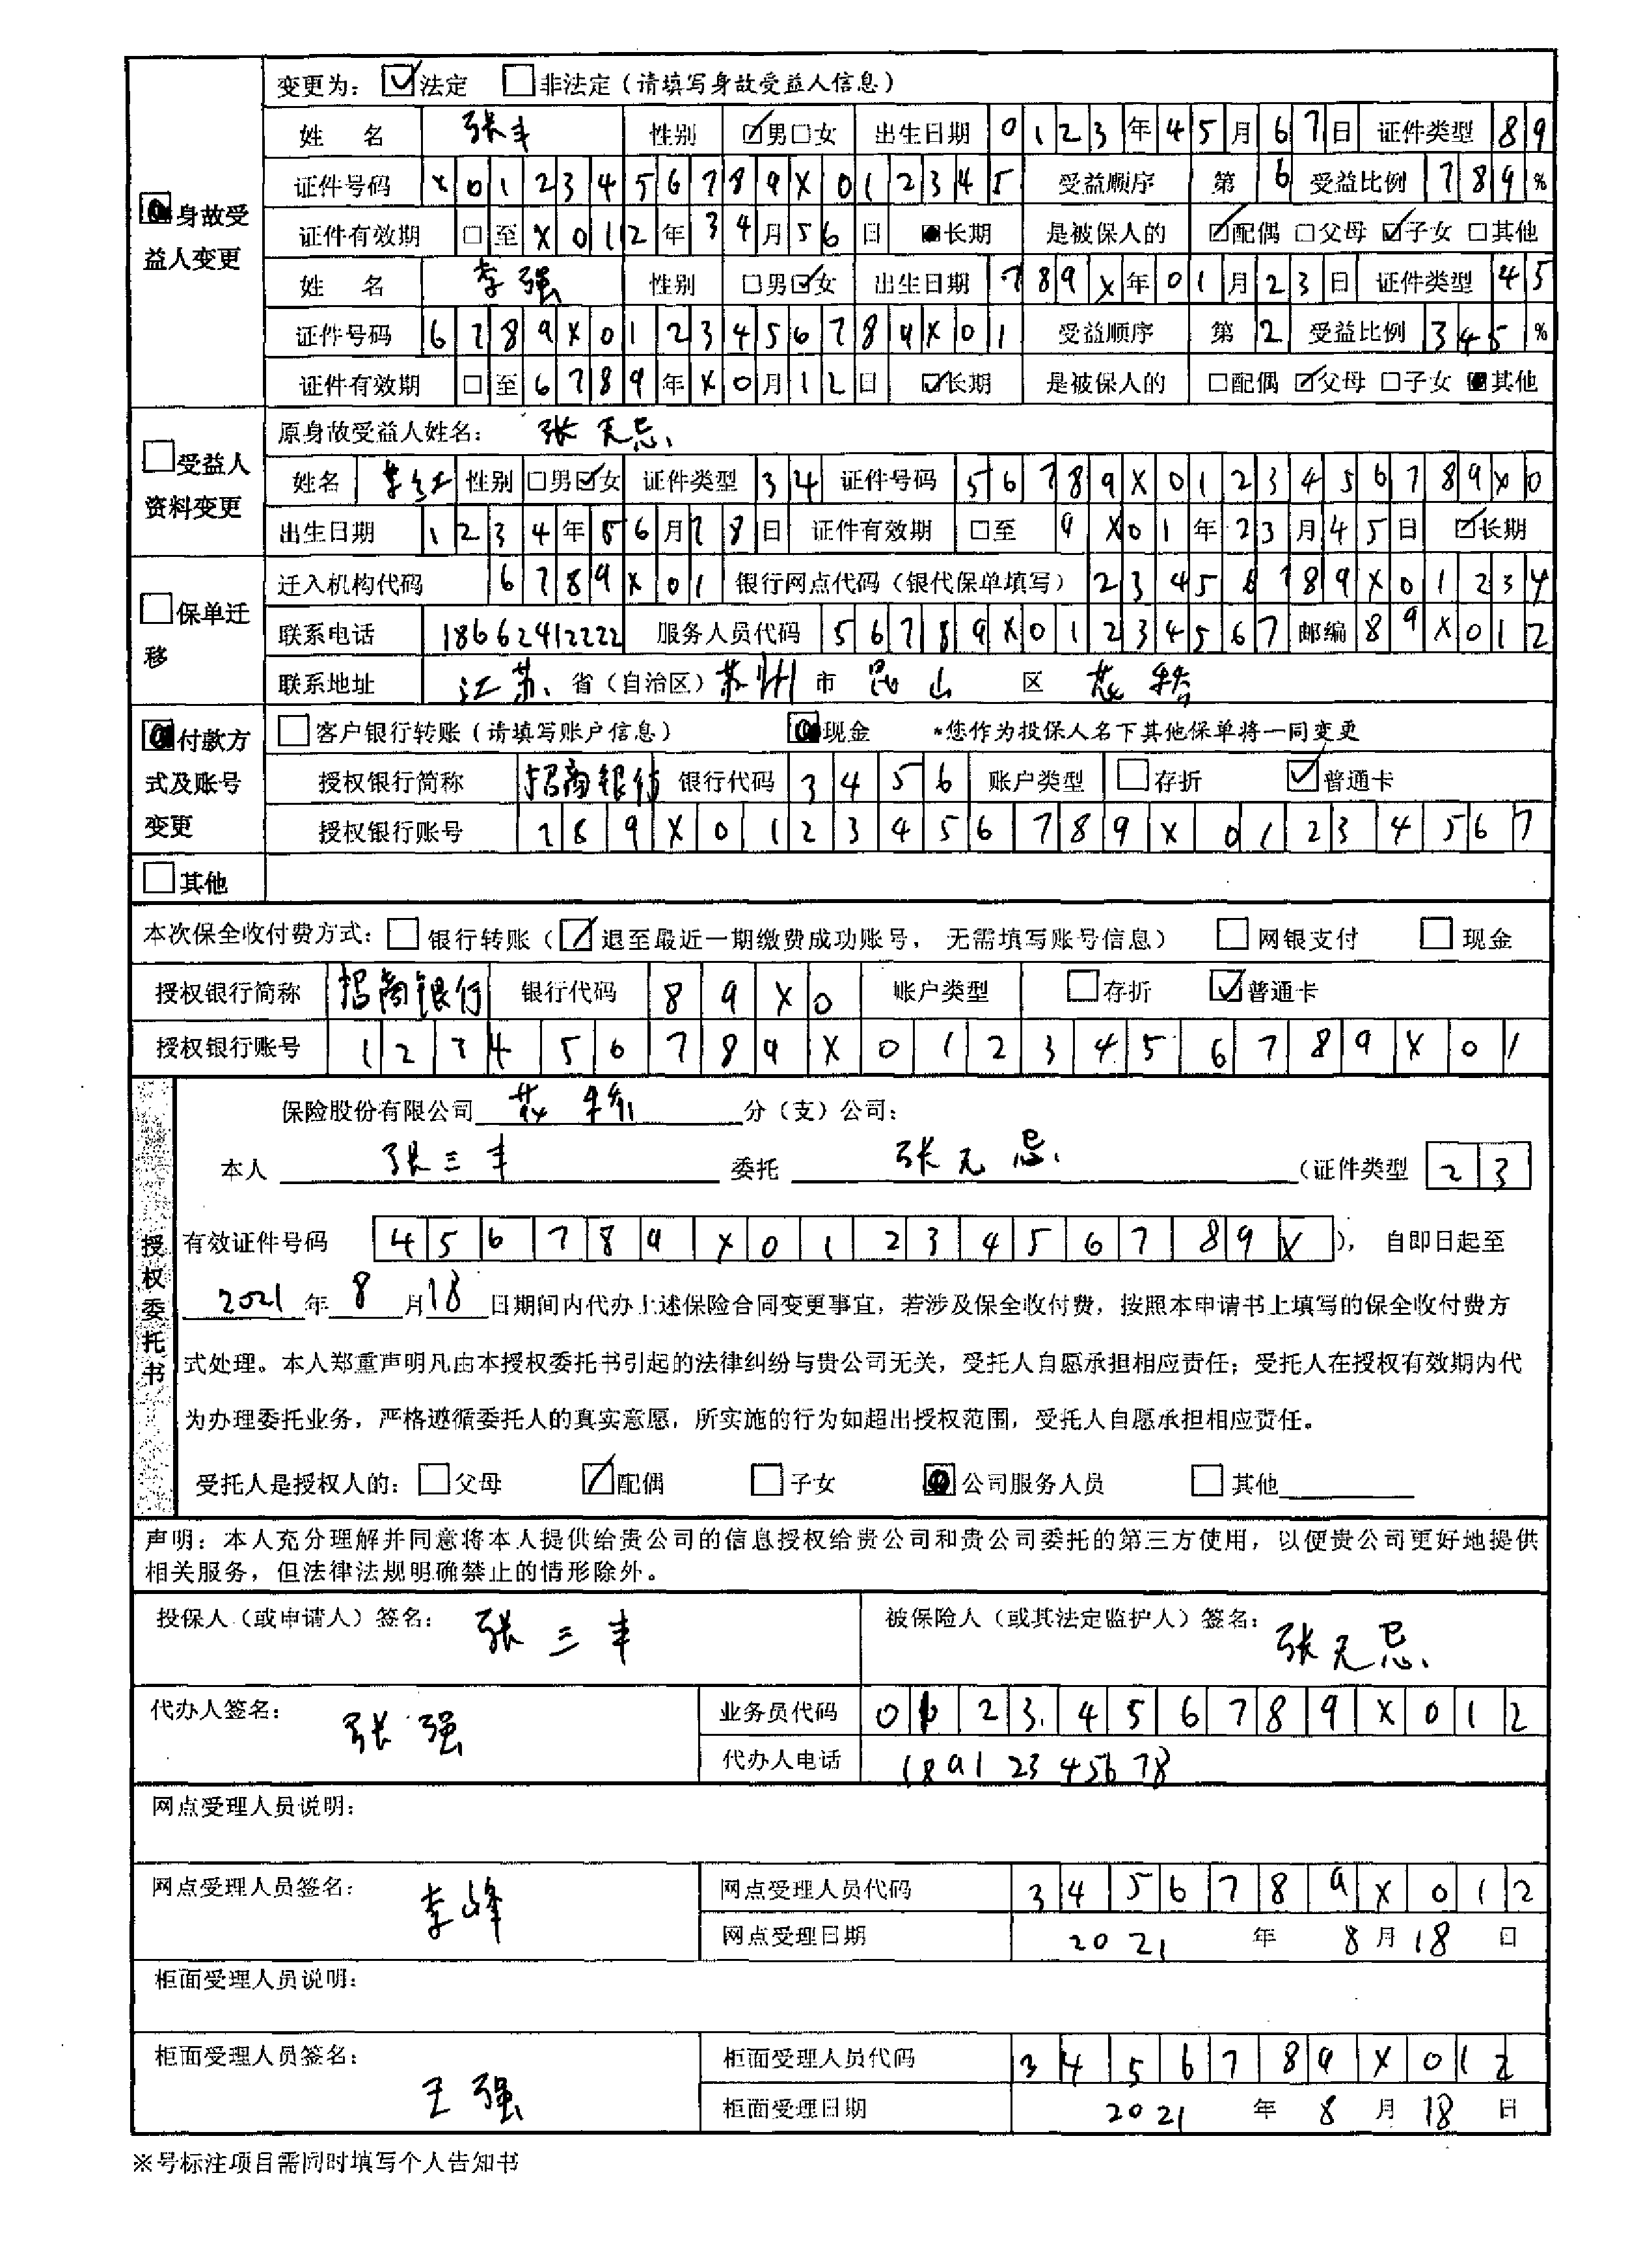 变更为：☑法定 □非法定（请填写身故受益人信息）
姓 名 张丰 性别 ☑男□女 出生日期 0123年45月67日 证件类型 89
证件号码 X0123456789X012345 受益顺序 第6 受益比例 789%
■身故受益人变更
证件有效期 □至 X012年34月56日 ■长期 是被保人的 ☑配偶 □父母 ☑子女 □其他
姓 名 李强 性别 □男☑女 出生日期 789X年01月23日 证件类型 45
证件号码 6789X0123456789X01 受益顺序 第2 受益比例 345%
证件有效期 □至 6789年X0月12日 ☑长期 是被保人的 □配偶 ☑父母 □子女 ■其他
□受益人资料变更
原身故受益人姓名： 张无忌
姓名 性别 □男☑女 证件类型 34 证件号码 56789X0123456789X0
出生日期 1234年56月78日 证件有效期 □至 9X01年23月45日 ☑长期
□保单迁移
迁入机构代码 6789X01 银行网点代码（银代保单填写） 23456789X01234
联系电话 18662412222 服务人员代码 56789X01234567 邮编 89X012
联系地址 江苏 省（自治区） 苏州 市 昆山 区 花桥
■付款方式及账号变更
□客户银行转账（请填写账户信息） ■现金 *您作为投保人名下其他保单将一同变更
授权银行简称 招商银行 银行代码 3456 账户类型 □存折 ☑普通卡
授权银行账号 789X0123456789X01234567
□其他
本次保全收付费方式：□银行转账（☑退至最近一期缴费成功账号，无需填写账号信息） □网银支付 □现金
授权银行简称 招商银行 银行代码 89X0 账户类型 □存折 ☑普通卡
授权银行账号 123456789X0123456789X01
授权委托书
保险股份有限公司 花桥 分（支）公司：
本人 张三丰 委托 张无忌 （证件类型 23
有效证件号码 456789X0123456789X ），自即日起至
2021年8月18日期间内代办上述保险合同变更事宜，若涉及保全收付费，按照本申请书上填写的保全收付费方
式处理。本人郑重声明凡由本授权委托书引起的法律纠纷与贵公司无关，受托人自愿承担相应责任；受托人在授权有效期内代
为办理委托业务，严格遵循委托人的真实意愿，所实施的行为如超出授权范围，受托人自愿承担相应责任。
受托人是授权人的：□父母 ☑配偶 □子女 ■公司服务人员 □其他
声明：本人充分理解并同意将本人提供给贵公司的信息授权给贵公司和贵公司委托的第三方使用，以便贵公司更好地提供
相关服务，但法律法规明确禁止的情形除外。
投保人（或申请人）签名： 张三丰 被保险人（或其法定监护人）签名： 张无忌
代办人签名： 张强 业务员代码 0123456789X012
代办人电话 18912345678
网点受理人员说明：
网点受理人员签名： 李峰 网点受理人员代码 3456789X012
网点受理日期 2021年8月18日
柜面受理人员说明：
柜面受理人员签名： 王强 柜面受理人员代码 3456789X012
柜面受理日期 2021年8月18日
※号标注项目需同时填写个人告知书